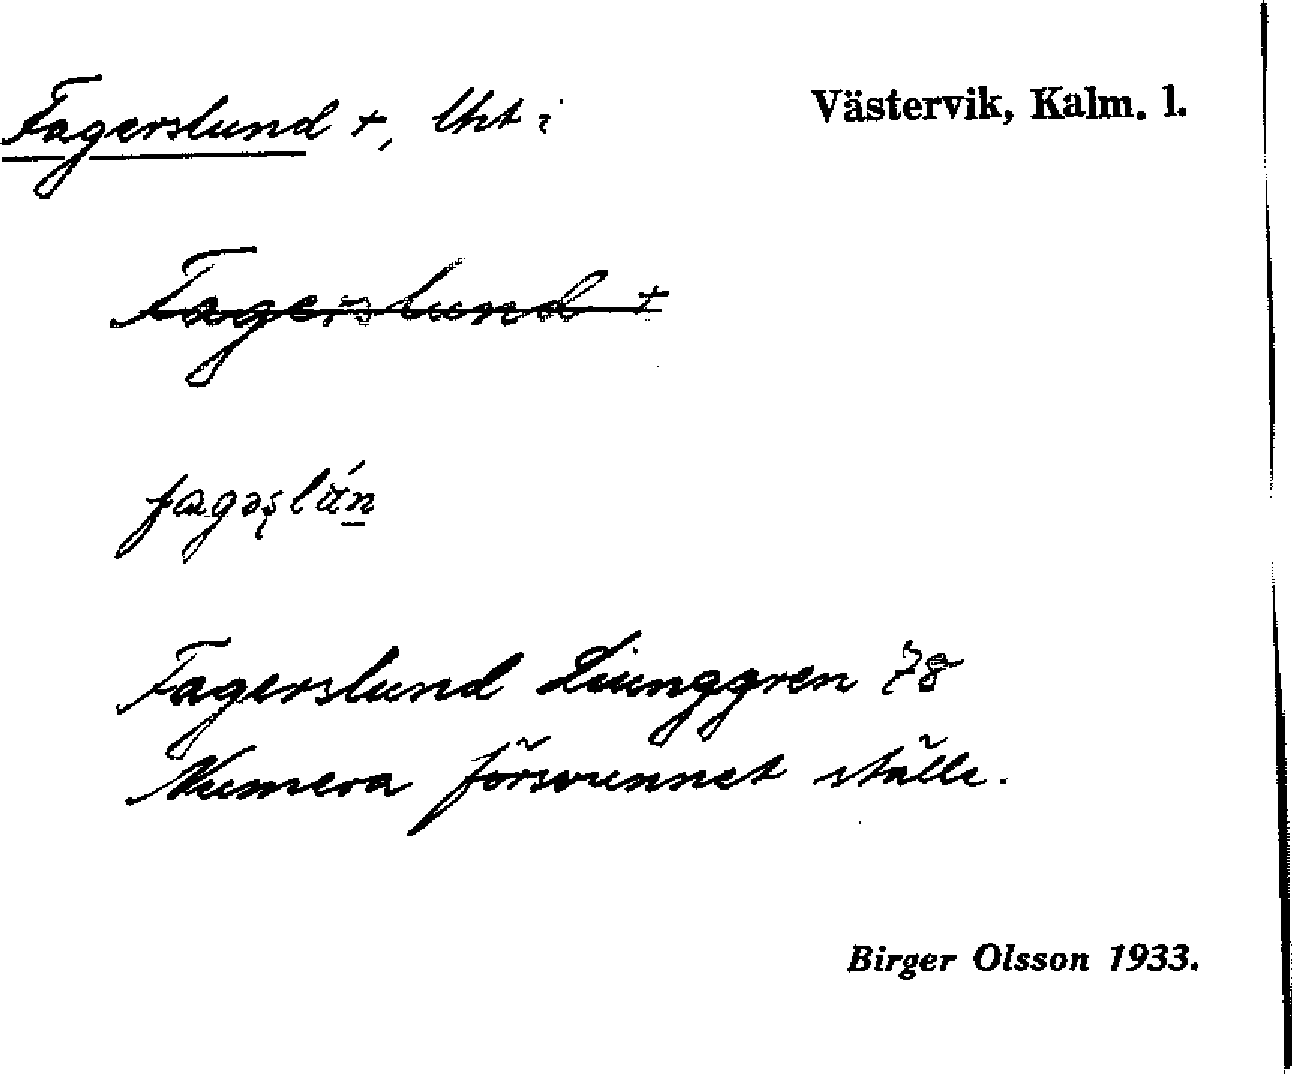 Fagerslund +, lht i Västervik, Kalm. l.
Fagerslund +
Fagerslund Liunggren 78
Numera försvunnet ställe.
Birger Olsson 1933.